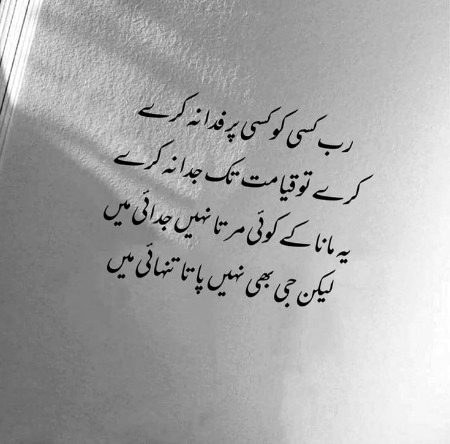 رب کسی کو کسی پر فدا نہ کرے
کرے تو قیامت تک جدا نہ کرے
یہ مانا کے کوئی مرتا نہیں جدائی میں
لیکن جی بھی نہیں پاتا تنہائی میں